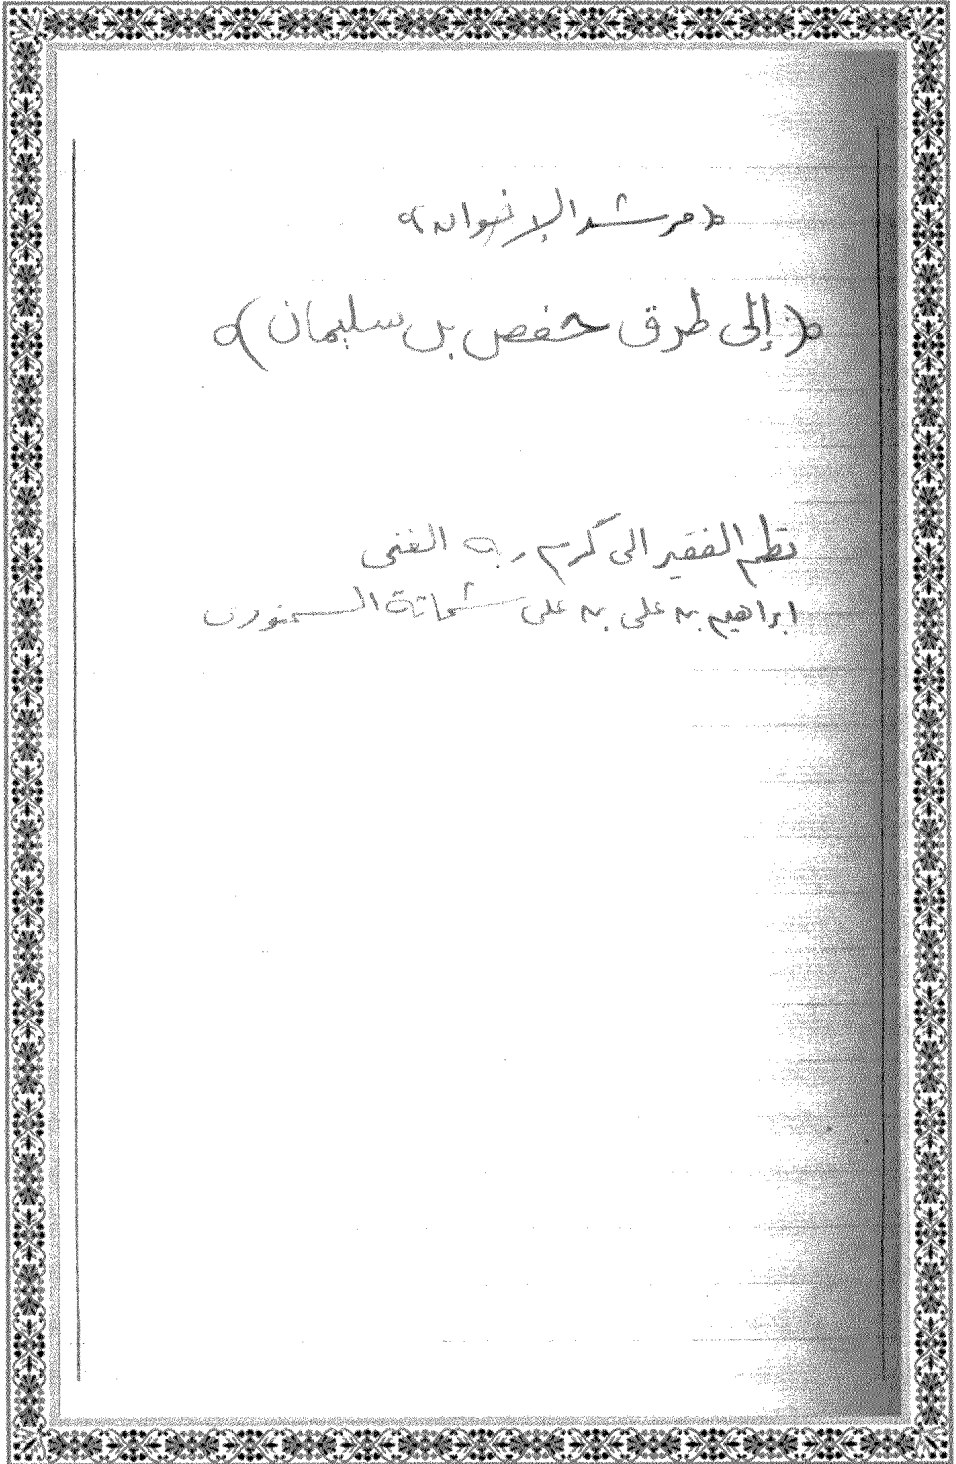 ﴿مرشد الإخوان﴾
﴿إلى طرق حفص بن سليمان﴾
نظم الفقير الى كرم ربه الغنى
ابراهيم بن على بن على شحاتة السمنودى